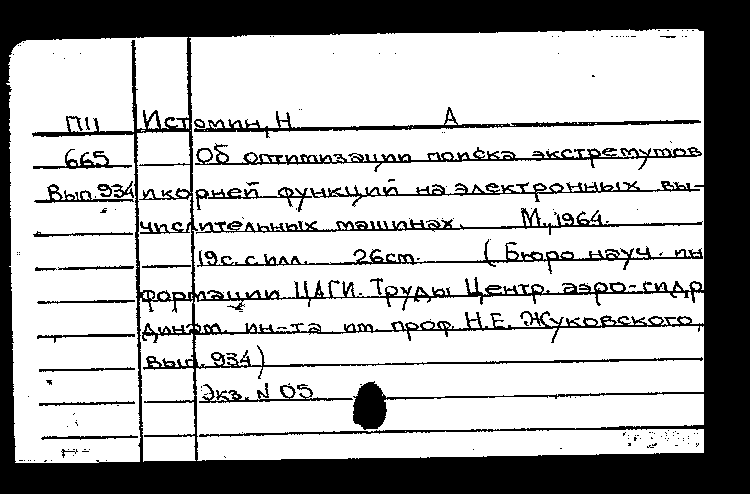 П11 Истомин, Н А
665 Об оптимизации поиска экстремумов
Вып. 934 и корней функций на электронных вы-
числительных машинах. М., 1964.
19с. с илл. 26cm. (Бюро науч. ин
формации ЦАГИ. Труды Центр. аэро-гидр
динам. ин-та им. проф. Н.Е. Жуковского,
вып. 934)
Экз. N 05